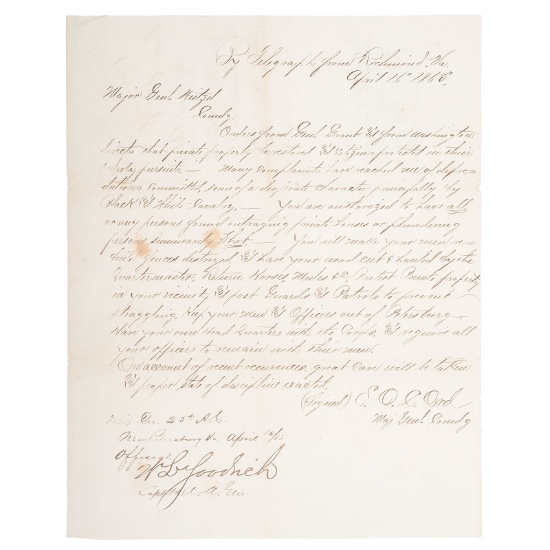 By Telegraph from Richmond Va
April 16" 1865
Major Genl Weitzel
Comdg
Orders from Genl Grant & from Washington
directs that private property be restored & citizens protected in their
pursuits — Many complaints have reached me of depre-
dations committed, some of a desperate character principally by
Black & White Cavalry. — You are authorized to have all
or any persons found outraging private houses or plundering
persons summarily Shot — You will make your
destroyed & have your wood cut & hauled by the
Quartermaster, Horses, Mules &c Protect Private property
in your vicinity & post Guards & Patrols to prevent
straggling. Keep your men & Officers out of Petersburg
Have your own Head Quarters with the Corps, & require all
your officers to remain with their men.
On account of recent occurrences, great care will be taken
& proper state of discipline exacted.
(Signed) E. O. C. Ord
Maj Genl Comdg
25th A.C.
Near Petersburg Va April
Official
W L Goodrich
Capt A. A. Gen